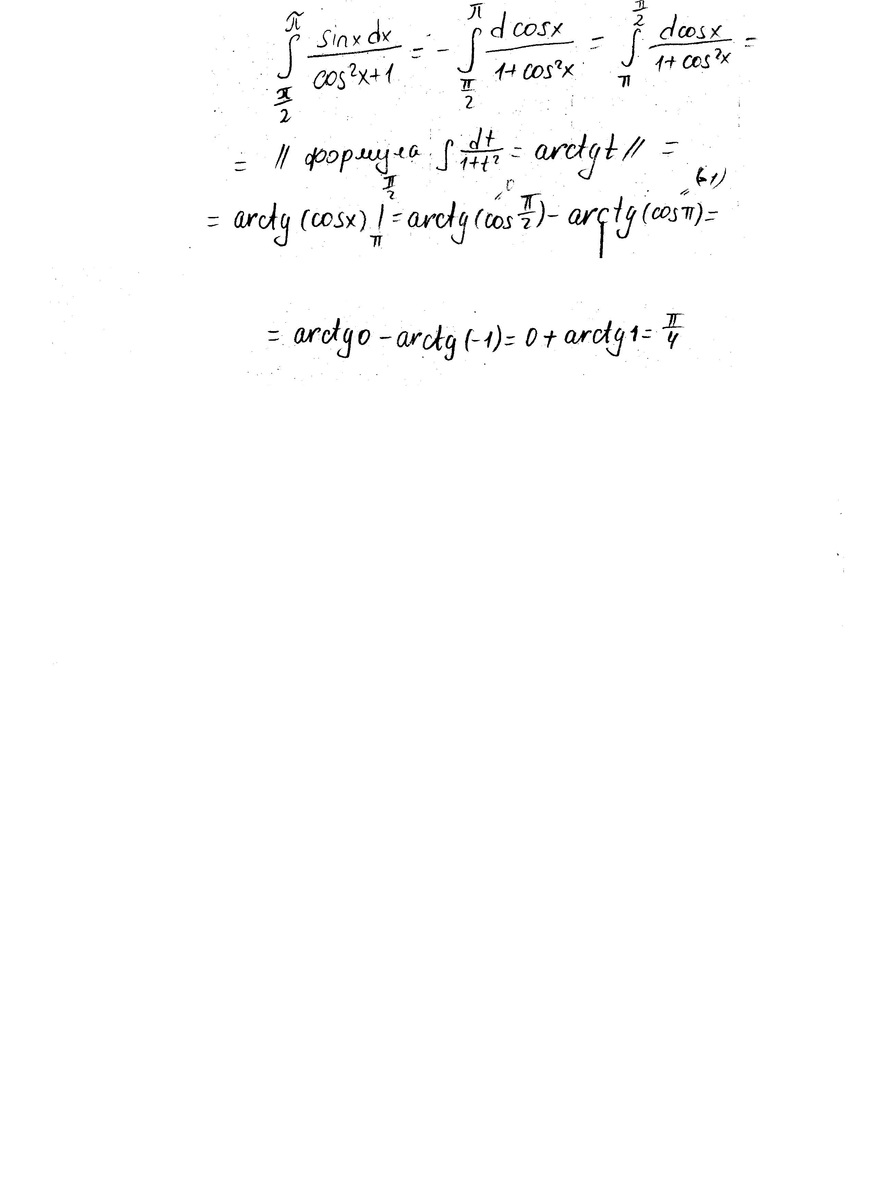 ∫_{π/2}^{π} sinx dx / (cos²x+1) = - ∫_{π/2}^{π} d cosx / (1+cos²x) = ∫_{π}^{π/2} dcosx / (1+cos²x) =
= // формула ∫ dt/(1+t²) = arctgt // =
= arctg (cosx) |_{π}^{π/2} = arctg (cos π/2) - arctg (cosπ) =
0 (-1)
= arctg0 - arctg (-1) = 0 + arctg1 = π/4